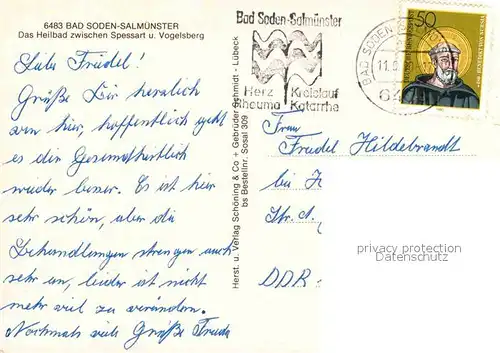 6483 BAD SODEN-SALMÜNSTER
Das Heilbad zwischen Spessart u. Vogelsberg
Liebe Friedel!
Grüße Dir herzlich
von hier, hoffentlich geht
es dir Gesundheitlich
wieder besser. Es ist hier
sehr schön, aber die
Behandlungen strengen auch
sehr an, leider ist nicht
mehr viel zu verändern.
Nochmals viele Grüße Frieda
Herst. u. Verlag Schöning & Co + Gebrüder Schmidt - Lübeck
bs Bestellnr. Sosal 309
Bad Soden-Salmünster
Herz Kreislauf
Rheuma Katarrhe
BAD SODEN
11.
64
50
Frau
Friedel Hildebrandt
bei
Str.
DDR
privacy protection
Datenschutz